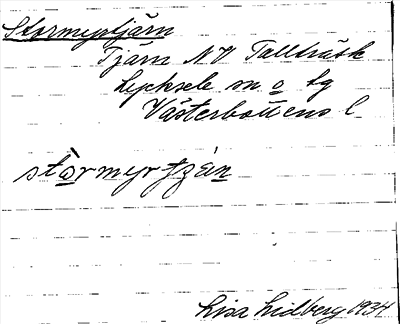 Stormyrtjärn
Tjärn NV Tallträsk
Lycksele sn o tg
Västerbottens l
stòrmyrtjän
Lisa Lidberg 1934